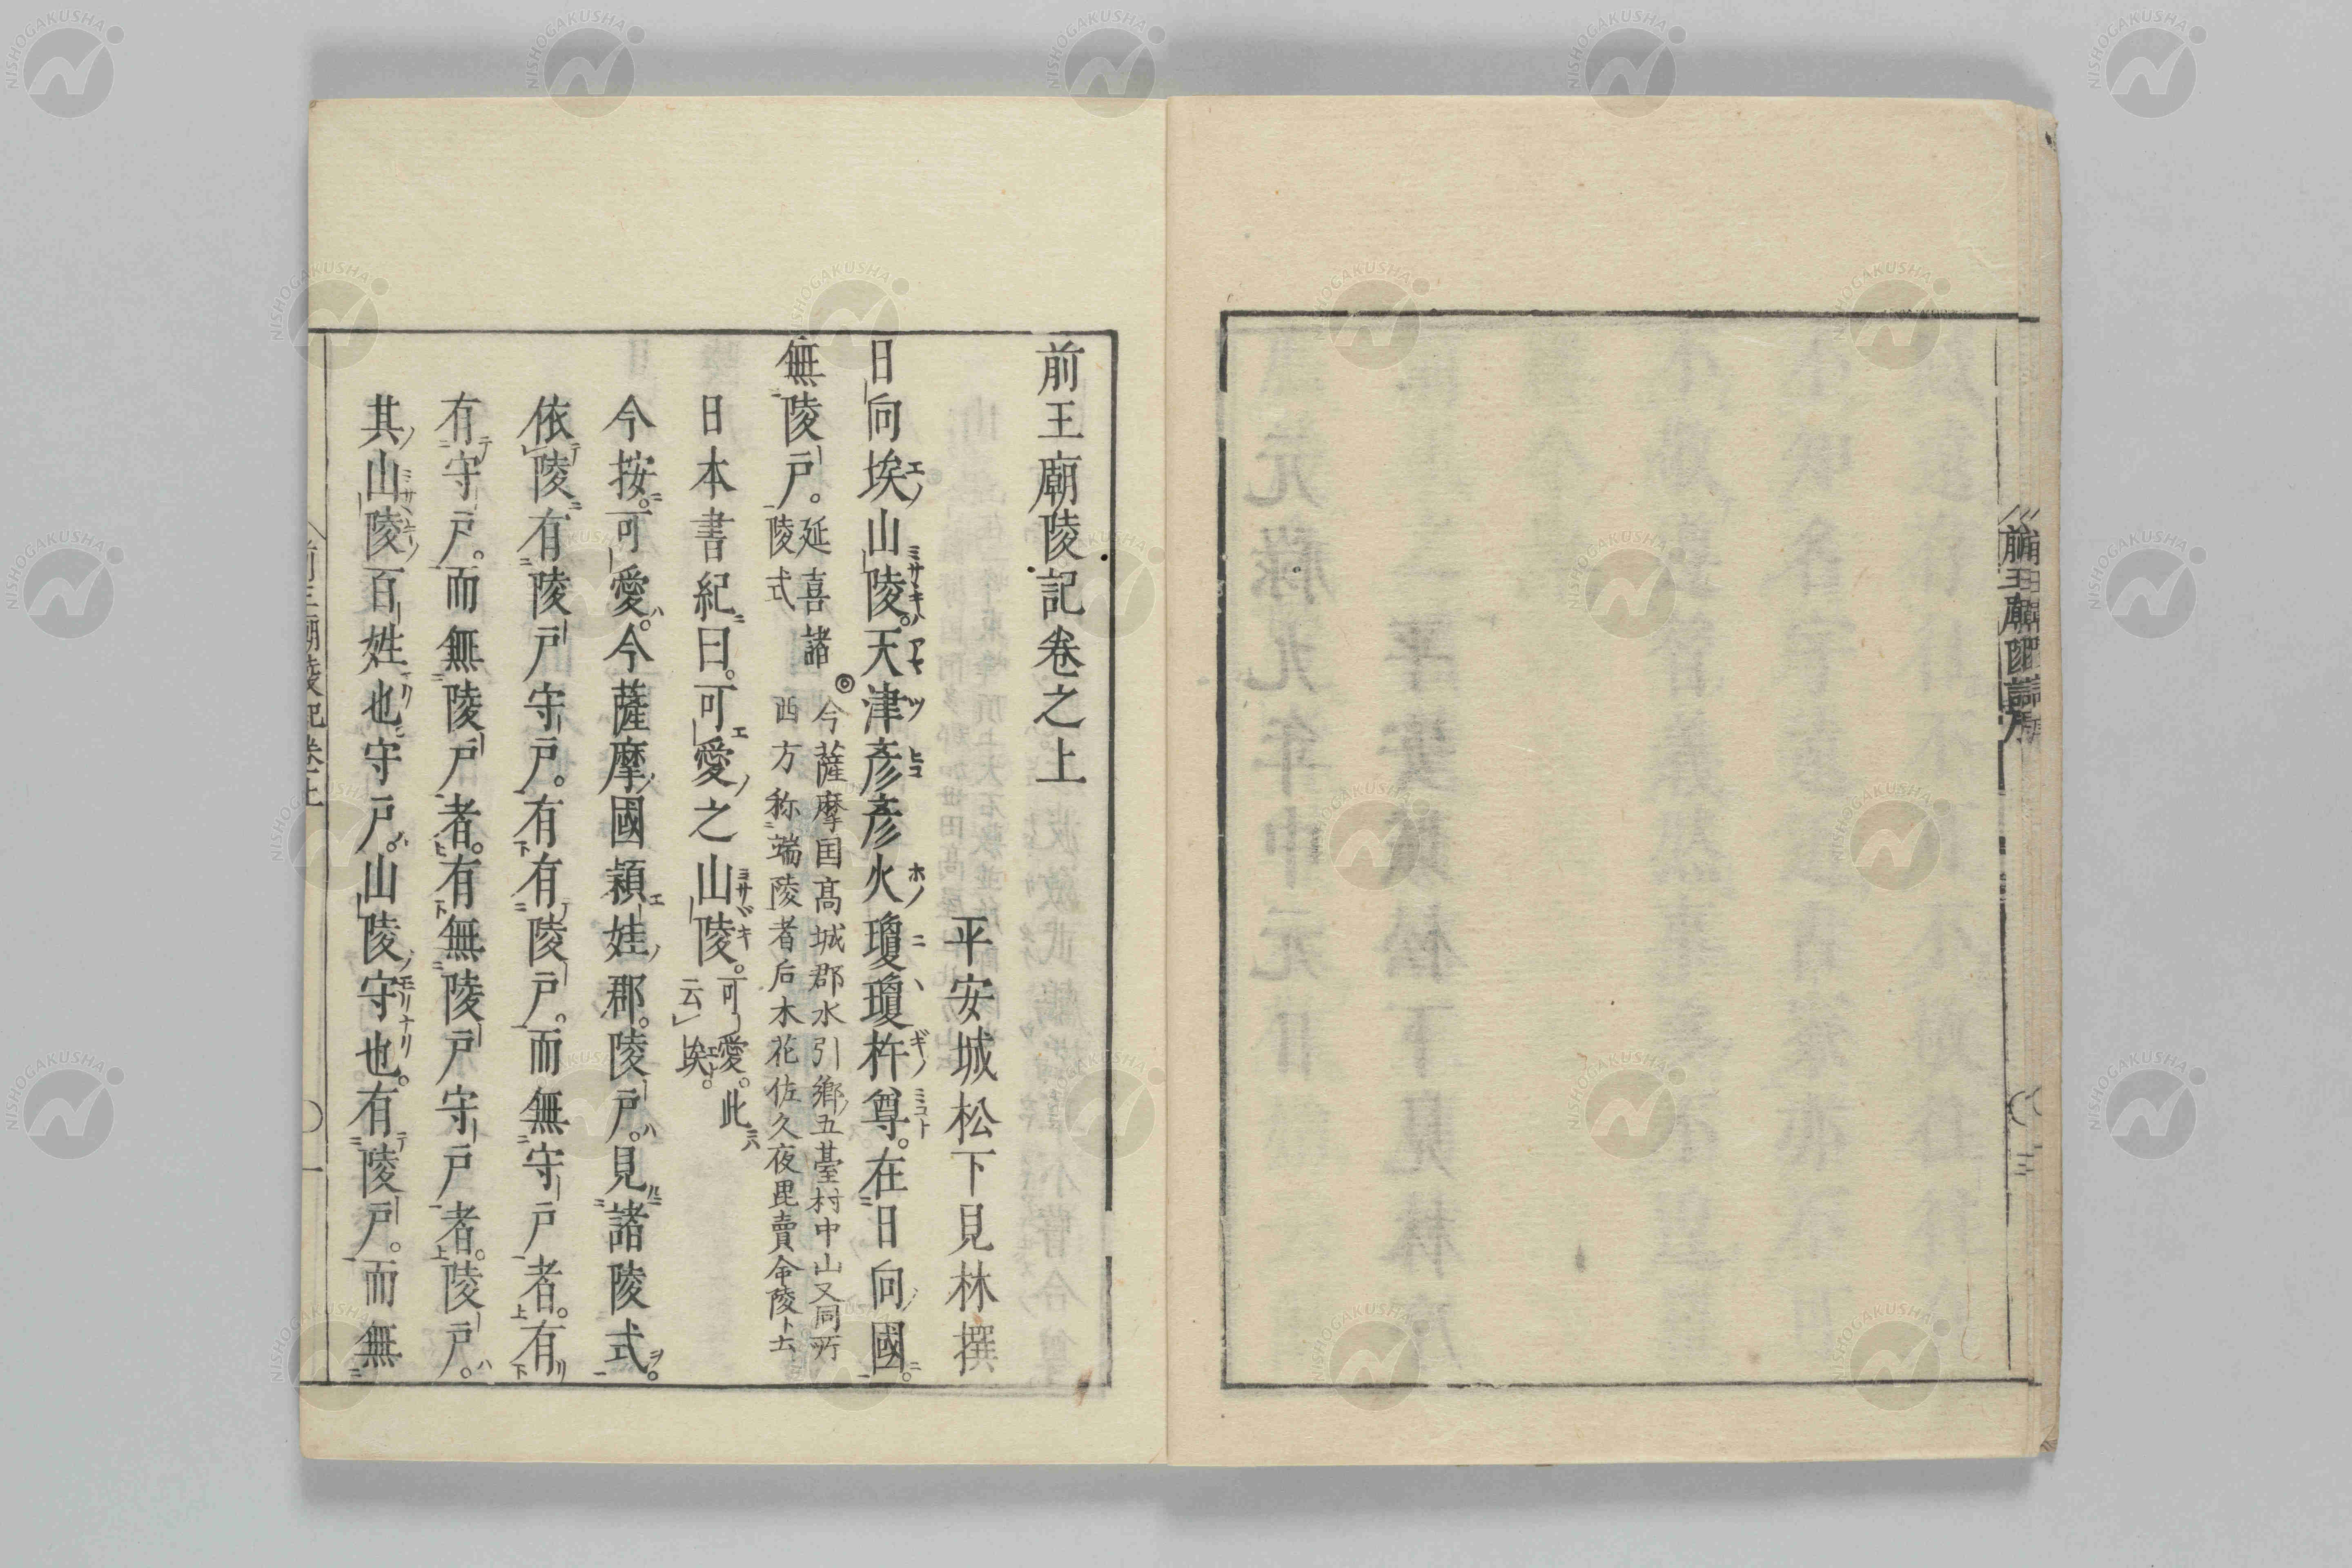 前王廟陵記卷之上
平安城松下見林撰
日向埃山陵。天津彥彥火瓊瓊杵尊。在日向國。
無陵戶。延喜諸
陵式
◎今薩摩国高城郡水引鄉五臺村中山又同所
西方称端陵者后木花佐久夜毘賣命陵ト云
日本書紀曰。可愛之山陵。可愛。此
云埃。
今按。可愛。今薩摩國穎娃郡。陵戶。見諸陵式。
依陵有陵戶守戶。有有陵戶。而無守戶者。有
有守戶。而無陵戶者。有無陵戶守戶者。陵戶。
其山陵百姓也守戶。山陵守也。有陵戶。而無
前王廟陵記卷上
一
NISHOGAKUSHA